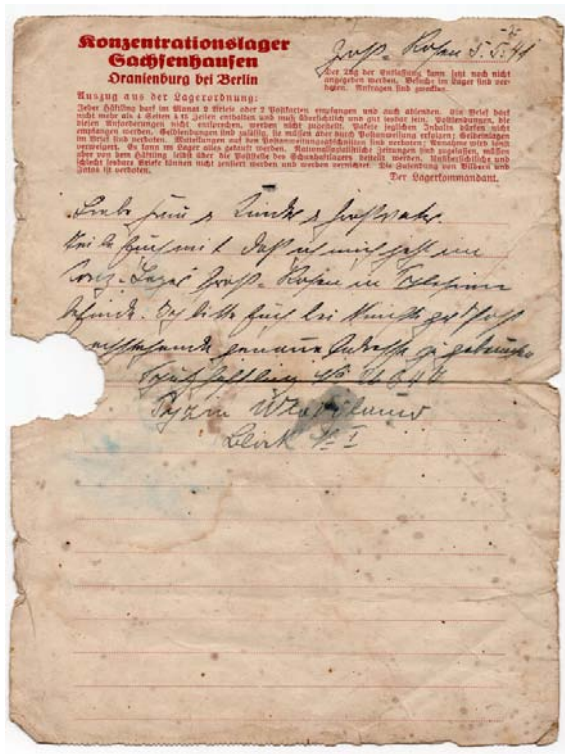 Konzentrationslager
Sachsenhausen
Oranienburg bei Berlin
Groß-Rosen 5.5.41
Der Tag der Entlassung kann jetzt noch nicht
angegeben werden. Besuche im Lager sind ver-
boten. Anfragen sind zwecklos.
Auszug aus der Lagerordnung:
Jeder Häftling darf im Monat 2 Briefe oder 2 Postkarten empfangen und auch absenden. Ein Brief darf
nicht mehr als 4 Seiten à 15 Zeilen enthalten und muß übersichtlich und gut lesbar sein. Postsendungen, die
diesen Anforderungen nicht entsprechen, werden nicht zugestellt. Pakete jeglichen Inhalts dürfen nicht
empfangen werden. Geldsendungen sind zulässig, sie müssen aber durch Postanweisung erfolgen; Geldeinlagen
im Brief sind verboten. Mitteilungen auf den Postanweisungsabschnitten sind verboten; Annahme wird sonst
verweigert. Es kann im Lager alles gekauft werden. Nationalsozialistische Zeitungen sind zugelassen, müssen
aber von dem Häftling selbst über die Poststelle des Schutzhaftlagers bestellt werden. Unübersichtliche und
schlecht lesbare Briefe können nicht zensiert werden und werden vernichtet. Die Zusendung von Bildern und
Fotos ist verboten.
Der Lagerkommandant.
Liebe Frau & Kinder & Großvater.
Teile Euch mit daß ich mich jetzt im
Konz-Lager Groß-Rosen in Schlesien
befinde. Ich bitte Euch bei
nachstehende genaue Adresse zu gebrauchen
Schutzhäftling No
Block No I